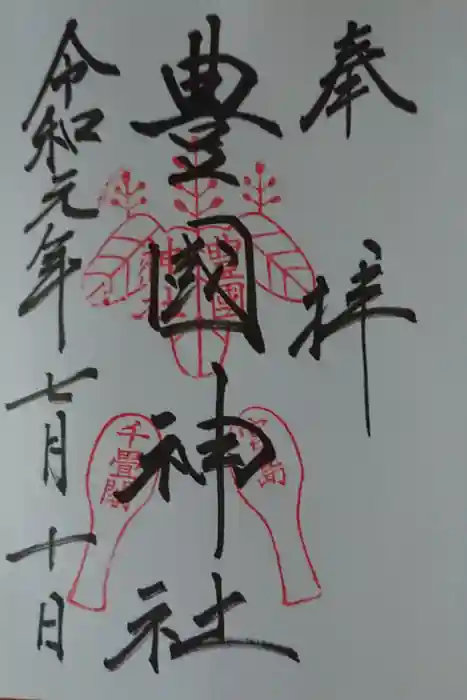 奉拝
豊國神社
令和元年七月十日
豊國
神社
千畳閣